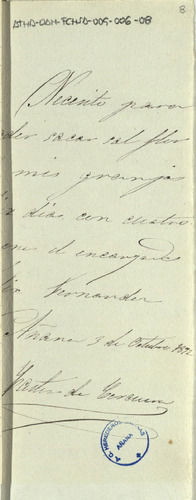 ATHA-DAH-FCHSD-005-006-08
8
Necesito para
der sacar sal flor
mis granjas
dias con cuatro
el encargado
Hernandez
Añana 3 de Octubre 1872
Martin de
AÑANA